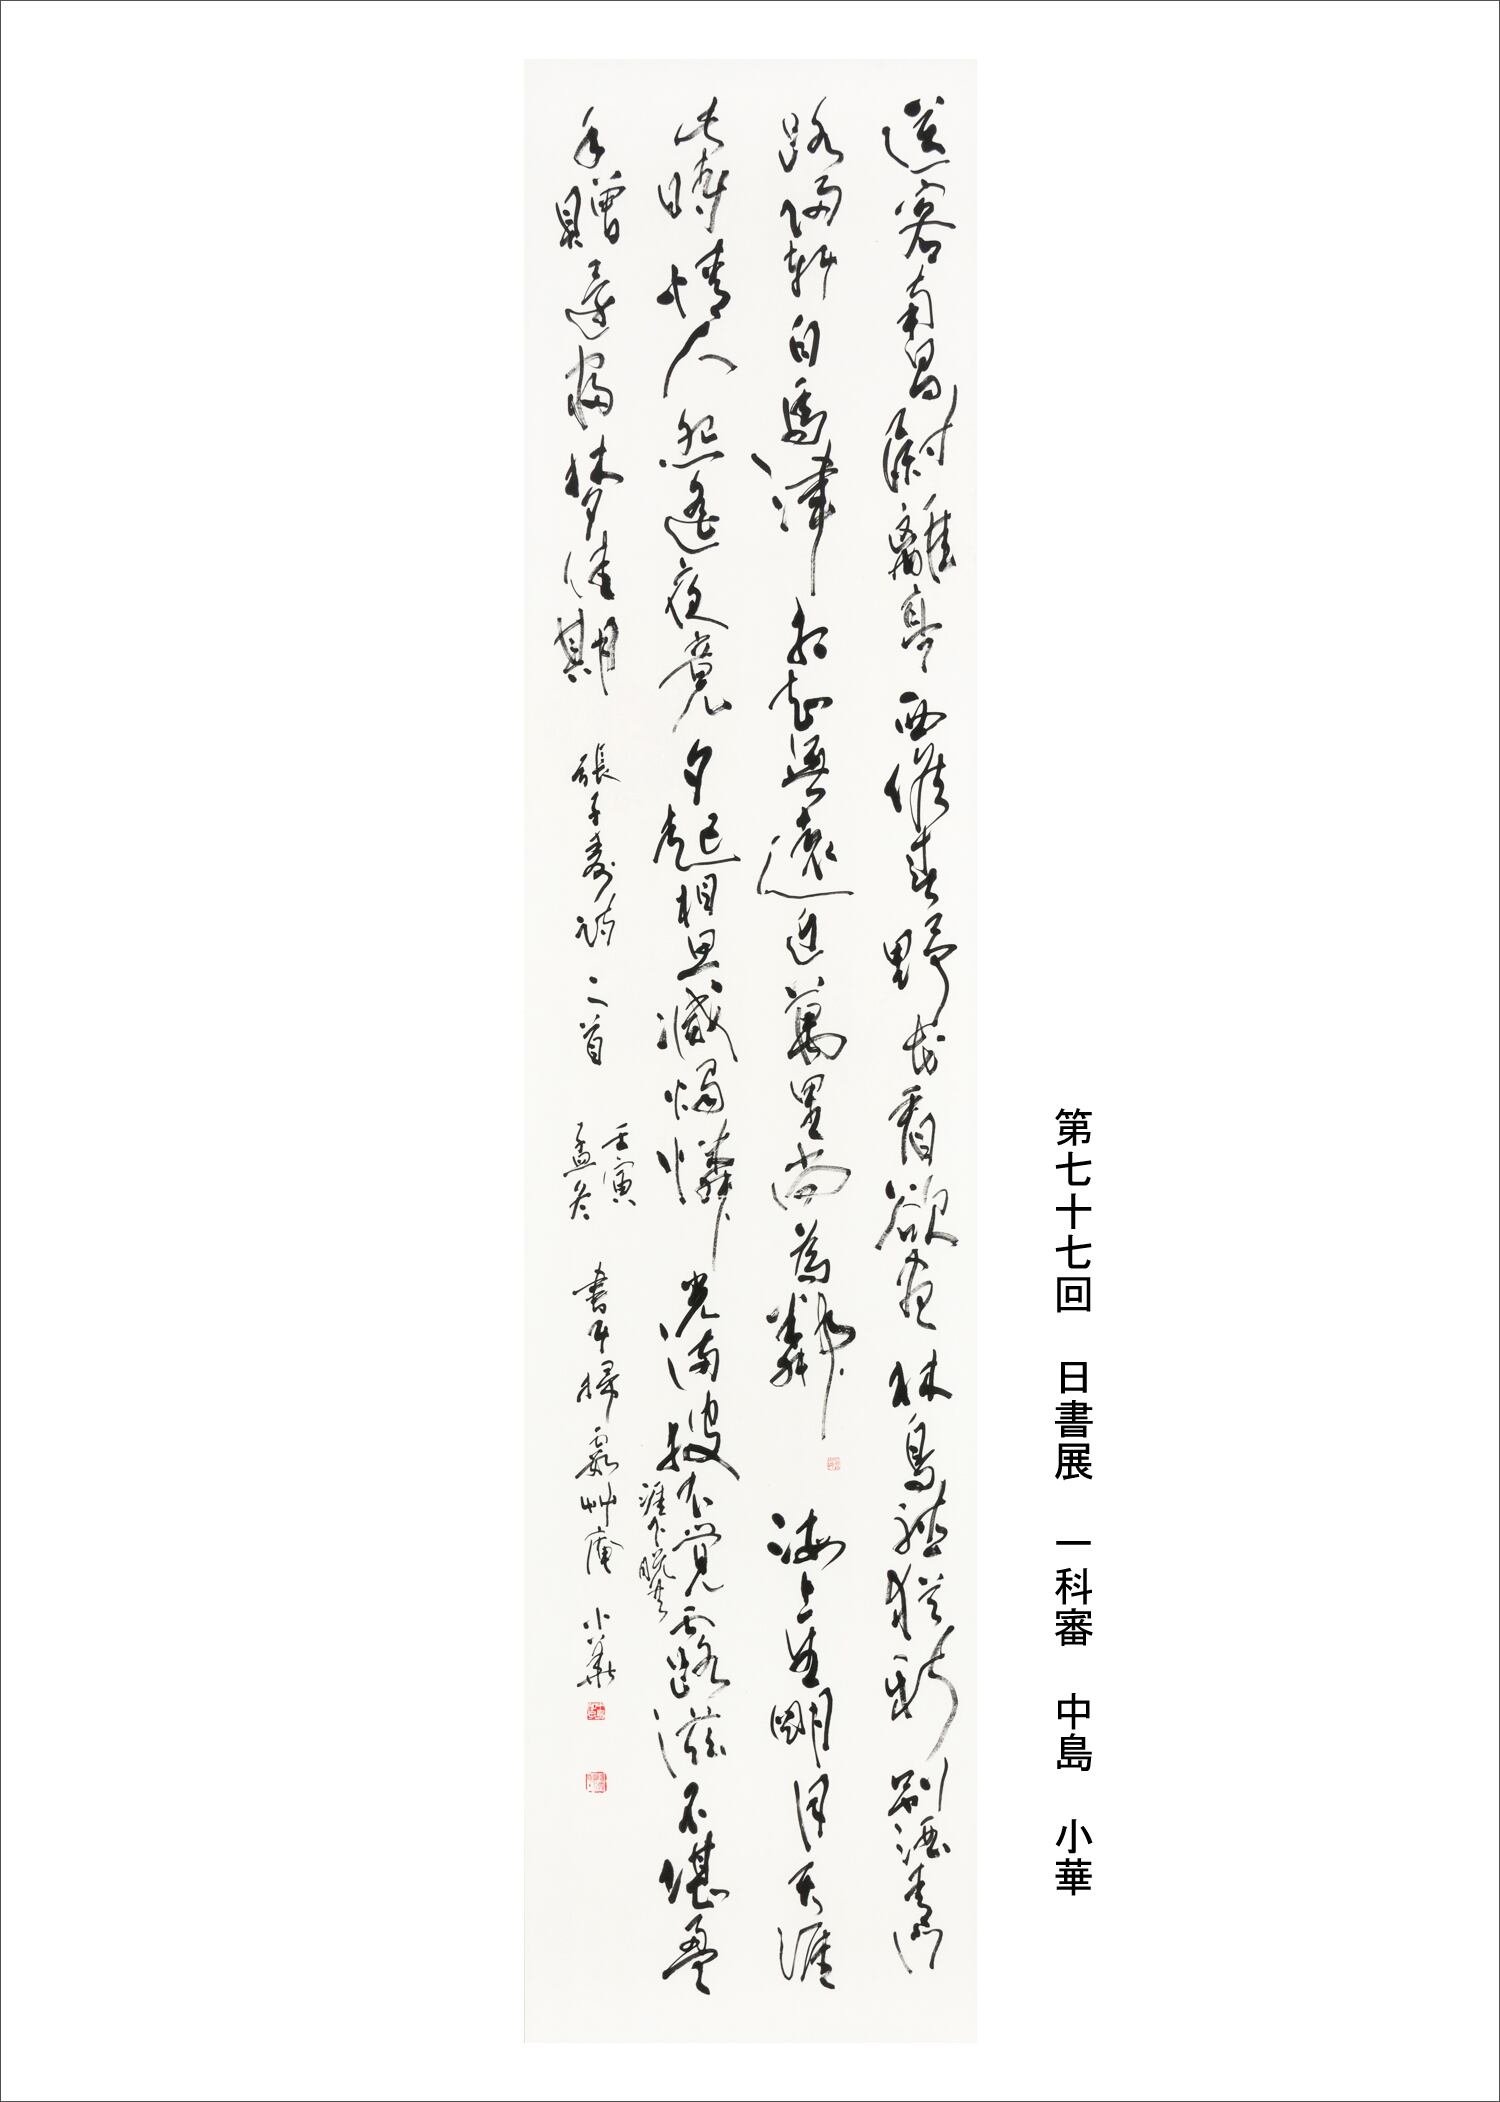 第七十七回　日書展　一科審　中島　小華
送客南昌尉離亭西候春野花看欲盡林鳥聽猶新別酒青門
路歸軒白馬津相知無遠近萬里尚為鄰　海上生明月天涯
此時情人怨遙夜竟夕起相思滅燭憐光滿披衣覺露滋不堪盈
涯下脱共
手贈還寢夢佳期　張子壽詩二首
壬寅
孟冬
書于掃霞艸庵　小華